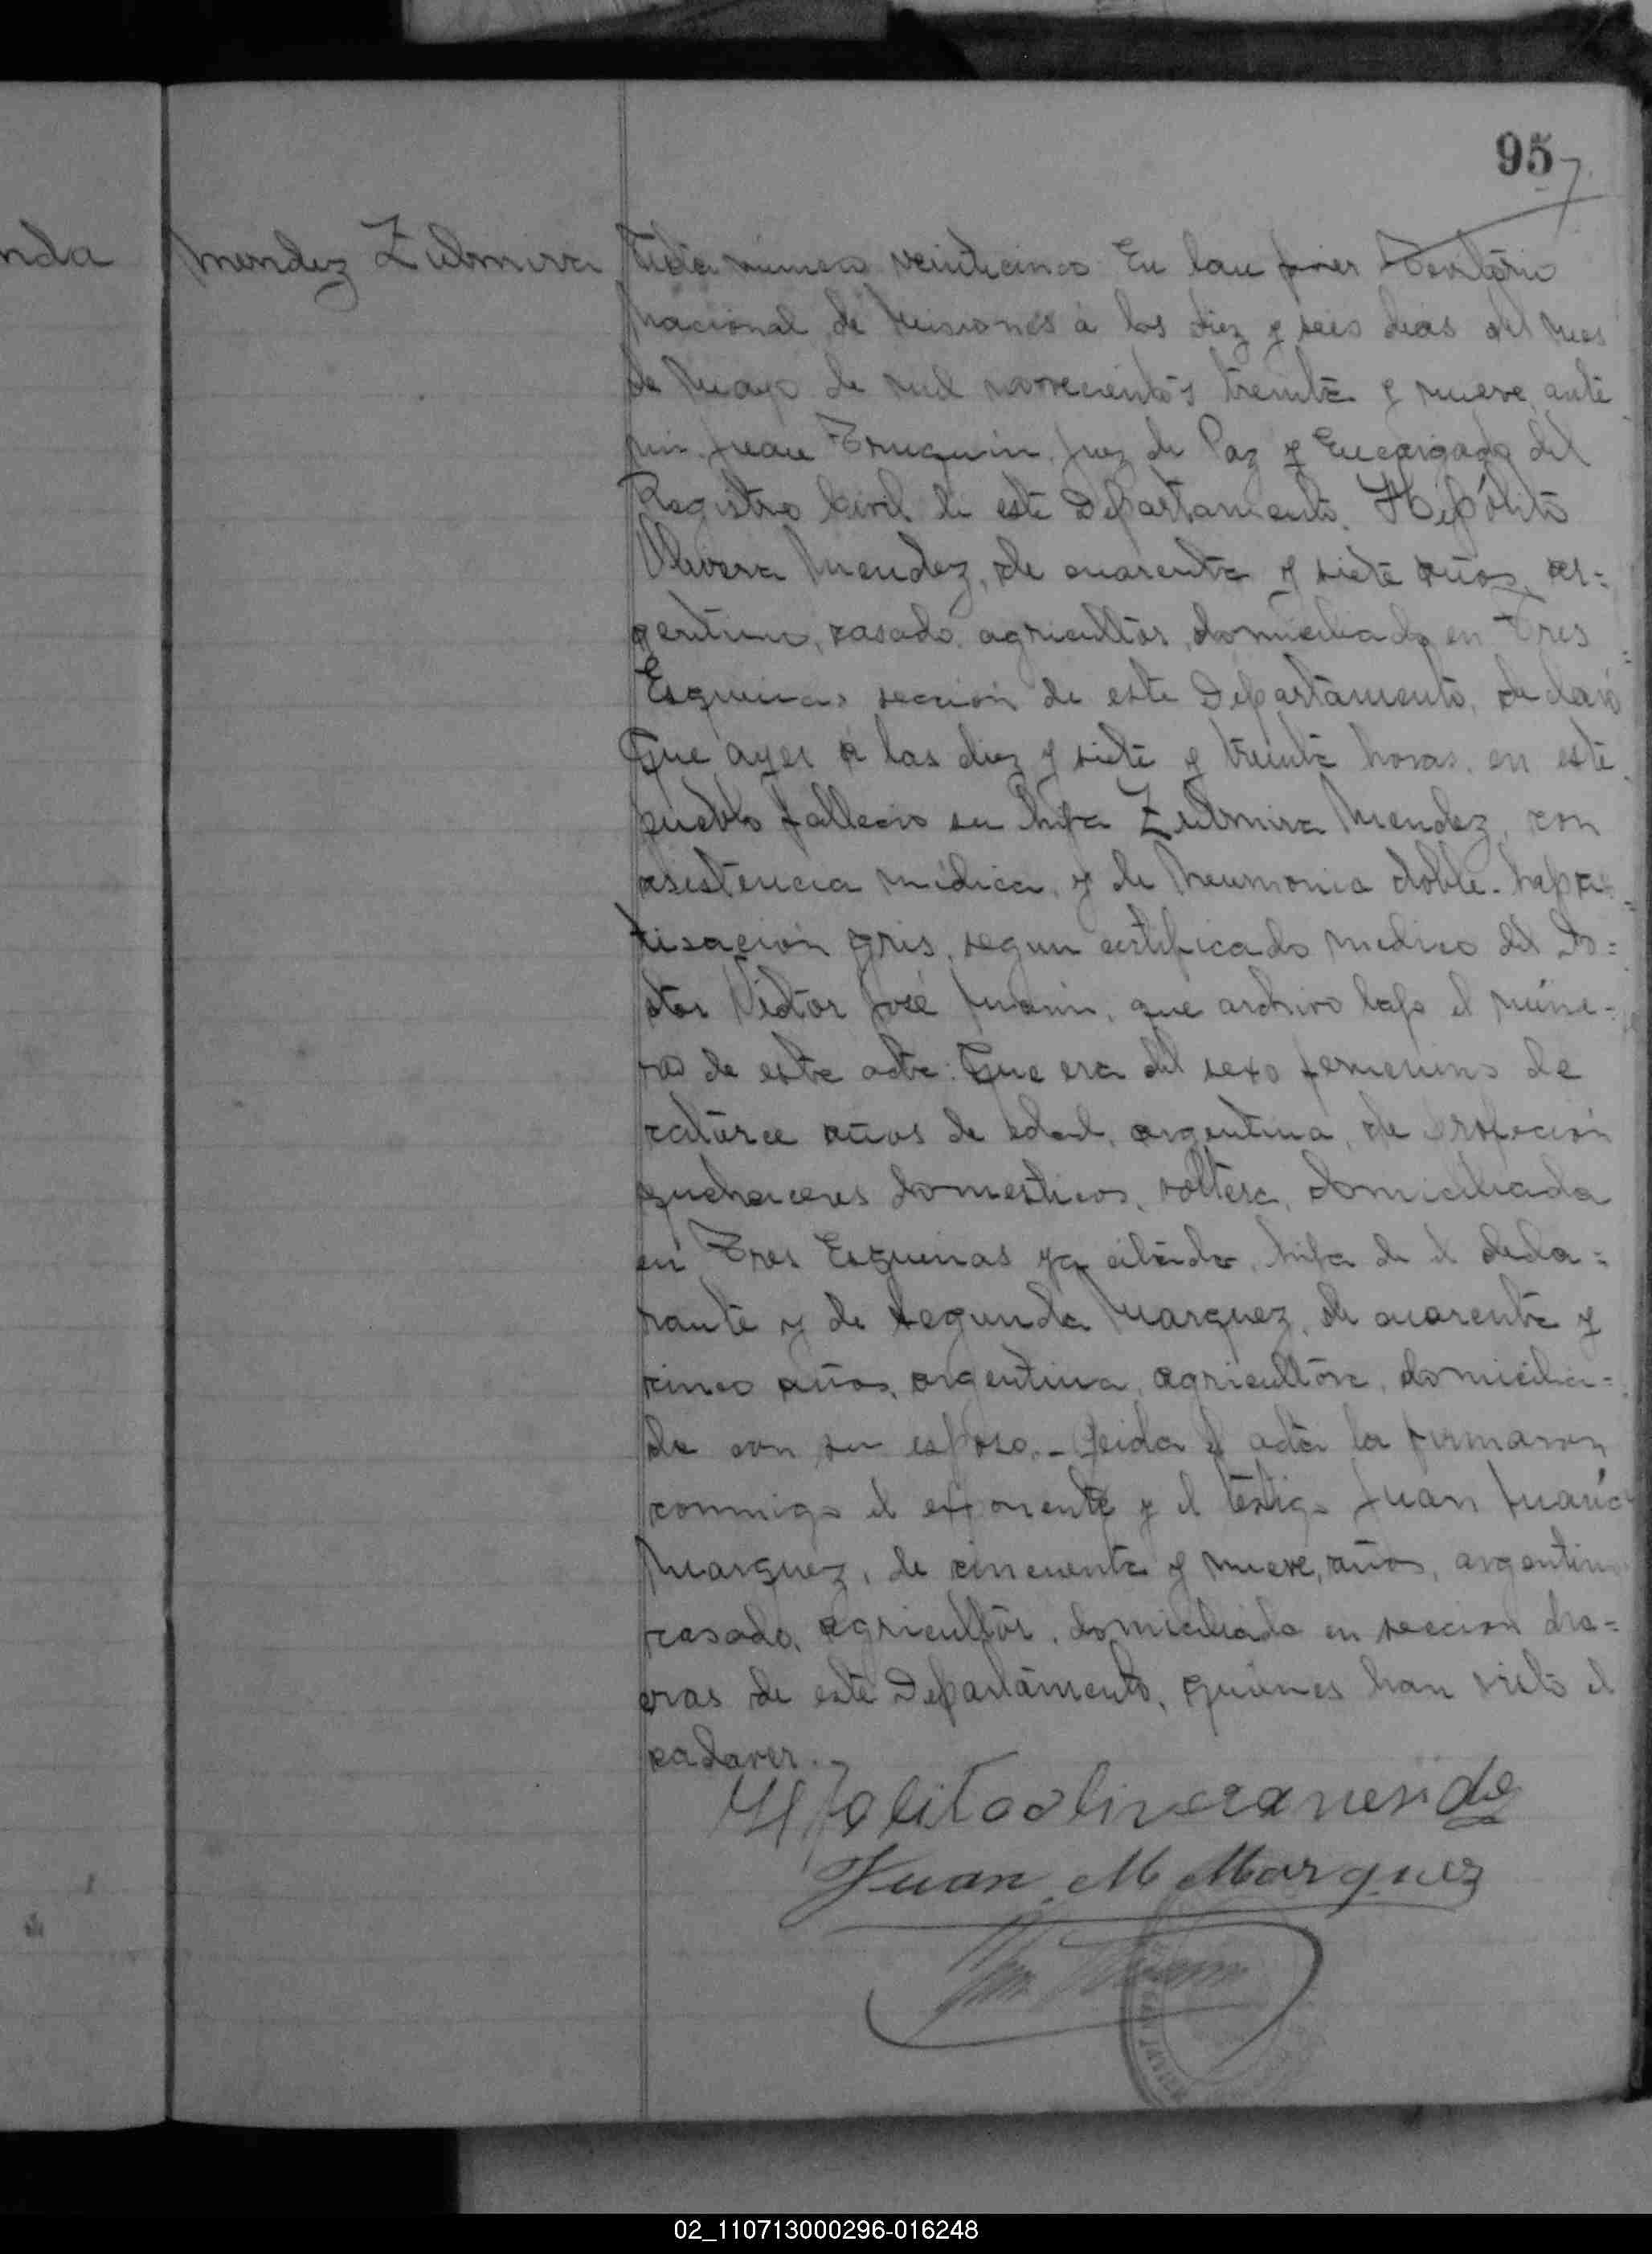 95
nda
Mendez Zulmira
Acta número veinticinco En San Javier Territorio
Nacional de Misiones á los diez y seis dias del mes
de Mayo de mil novecientos treinta y nueve, ante
mi Juan Truquin, Juez de Paz y Encargado del
Registro Civil de este Departamento, Hipólito
Olivera Mendez, de cuarenta y siete años, ar=
gentino, casado, agricultor, domiciliado en Tres
Esquinas sección de este Departamento, declaró
Que ayer á las diez y siete y treinta horas, en este
pueblo fallecio su hija Zulmira Mendez, con
asistencia médica, y de Neumonia doble - hepa=
tisación gris, segun certificado medico del Do=
ctor Victor José, que archivo bajo el núme=
ro de esta acta: Que era del sexo femenino de
catorce años de edad, argentina, de profeción
quehaceres domesticos, soltera, domiciliada
en Tres Esquinas ya citado, hija de el decla=
rante y de Segunda Marquez, de cuarenta y
cinco años, argentina, agricultora, domicilia=
da con su esposo. - Leida el acta la firmaron
conmigo el exponente y el testigo Juan María
Marquez, de cincuenta y nueve, años, argentino
casado, agricultor, domiciliado en seccion
de este Departamento, quienes han visto el
cadaver. -
Hipolito olivera mendez
Juan M Marquez
02_110713000296-016248